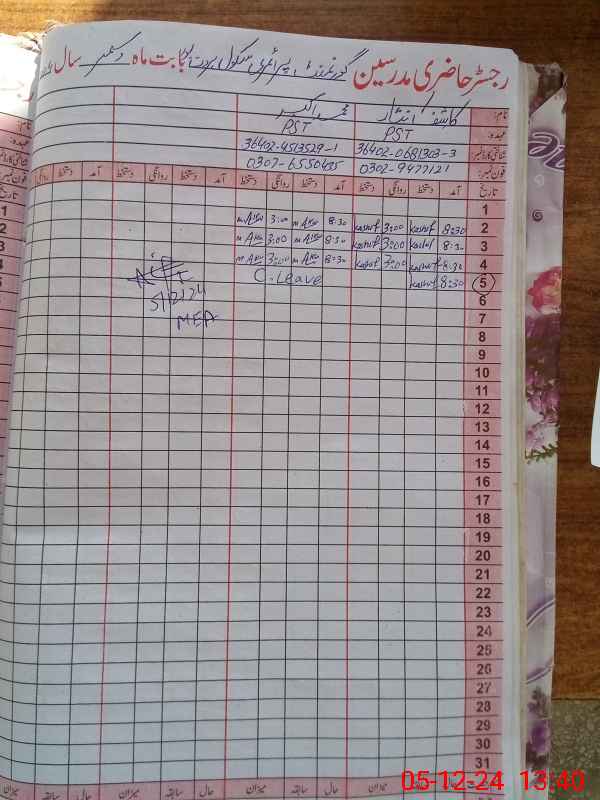 رجسٹر حاضری مدرسین گورنمنٹ پرائمری سکول بابت ماہ دسمبر سال
نام: کاشف محمد اکبر
عہدہ: PST PST
شناختی کارڈ نمبر: 36402-0681303-3 36402-4513529-1
فون نمبر: 0302-9477121 0307-6550455
تاریخ آمد دستخط روانگی دستخط آمد دستخط روانگی دستخط آمد دستخط روانگی دستخط آمد دستخط روانگی
1
2 8:30 Kashif 3:00 Kashif 8:30 3:00
3 8:30 Kashif 3:00 Kashif 8:30 3:00
4 8:30 Kashif 3:00 Kashif 8:30 3:00
5 8:30 Kashif C. Leave
6
5/12/24
7
MEA
8
9
10
11
12
13
14
15
16
17
18
19
20
21
22
23
24
25
26
27
28
29
30
31
حال سابقہ میزان حال سابقہ میزان حال سابقہ میزان حال سابقہ میزان
05-12-24 13:40